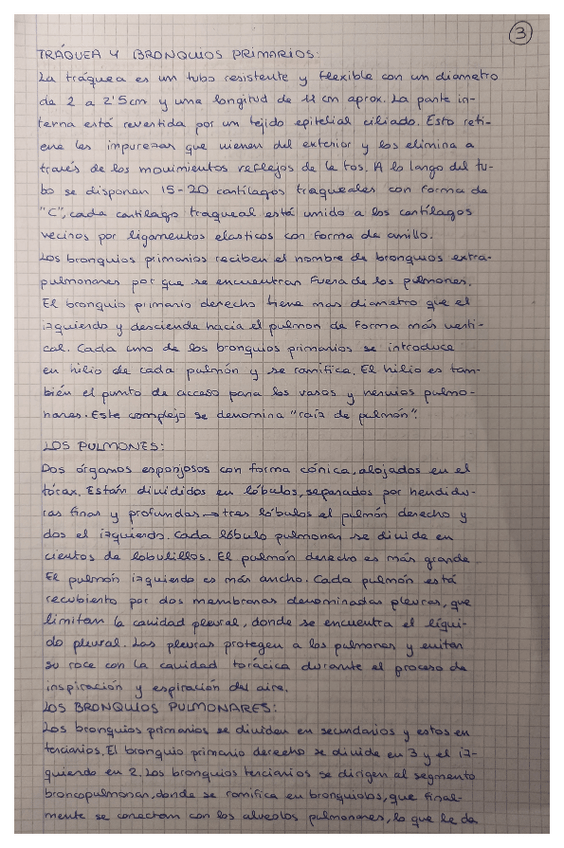 3
TRÁQUEA Y BRONQUIOS PRIMARIOS:
La tráquea es un tubo resistente y flexible con un diametro
de 2 a 2'5cm y una longitud de 11 cm aprox. La parte in-
terna está revestida por un tejido epitelial ciliado. Esto reti-
ene las impurezas que vienen del exterior y los elimina a
través de los movimientos reflejos de la tos. A lo largo del tu-
bo se disponen 15-20 cartílagos traqueales con forma de
"C", cada cartílago traqueal está unido a los cartílagos
vecinos por ligamentos elasticos con forma de anillo.
Los bronquios primarios reciben el nombre de bronquios extra-
pulmonares por que se encuentran fuera de los pulmones.
El bronquio primario derecho tiene mas diametro que el
izquierdo y desciende hacia el pulmon de forma más verti-
cal. Cada uno de los bronquios primarios se introduce
en hilio de cada pulmón y se ramifica. El hilio es tam-
bién el punto de acceso para los vasos y nervios pulmo-
nares. Este complejo se denomina "raíz de pulmón".
LOS PULMONES:
Dos órganos esponjosos con forma cónica, alojados en el
tórax. Están divididos en lóbulos, separados por hendidu-
ras finas y profundas → tres lóbulos el pulmón derecho y
dos el izquierdo. Cada lóbulo pulmonar se divide en
cientos de lobulillos. El pulmón derecho es más grande.
El pulmón izquierdo es más ancho. Cada pulmón está
recubierto por dos membranas denominadas pleuras, que
limitan la cavidad pleural, donde se encuentra el líqui-
do pleural. Las pleuras protegen a los pulmones y evitan
su roce con la cavidad torácica durante el proceso de
inspiración y espiración del aire.
LOS BRONQUIOS PULMONARES:
Los bronquios primarios se dividen en secundarios y estos en
terciarios. El bronquio primario derecho se divide en 3 y el iz-
quierdo en 2. Los bronquios terciarios se dirigen al segmento
broncopulmonar, donde se ramifica en bronquiolos, que final-
mente se conectan con los alveolos pulmonares, lo que le da